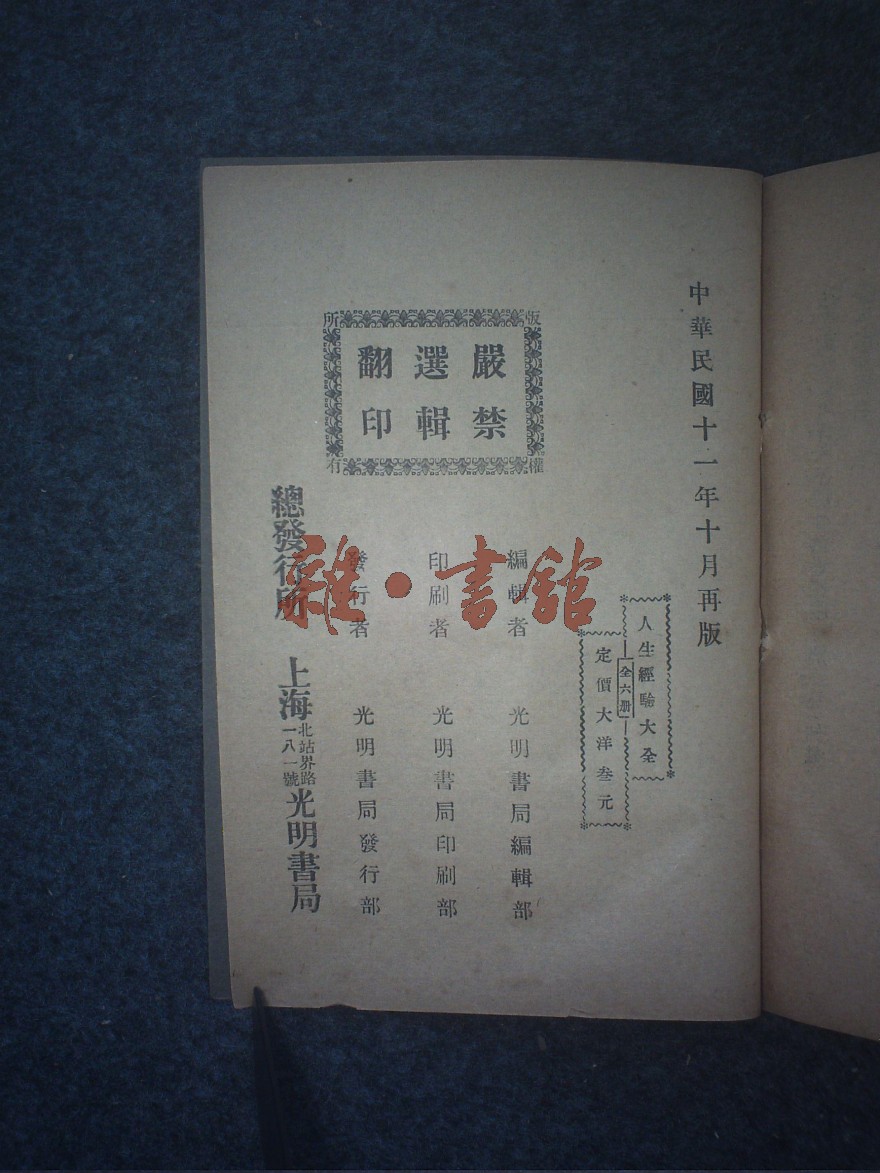 中華民國十一年十月再版
人生經驗大全
全六册
定價大洋叁元
版權所有
嚴禁
選輯
翻印
編輯者 光明書局編輯部
印刷者 光明書局印刷部
發行者 光明書局發行部
總發行所 上海北站界路一八一號光明書局
雜·書館